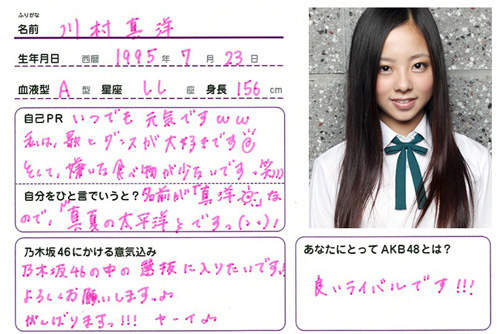 ふりがな
名前 川村真洋
生年月日 西暦 1995年 7月 23日
血液型 A型 星座 しし座 身長 156cm
自己PR いつでも元気ですww
私は、歌とダンスが大好きです
そして、嫌いな食べ物が少ないです。笑)))
自分をひと言でいうと? 名前が「真洋」な
ので、「真夏の太平洋」とですっ(>、<)!
乃木坂46にかける意気込み
乃木坂46の中の選抜に入りたいです!
よろしくお願いします。♪
がんばりますっ!!! ヤーイ♪
あなたにとってAKB48とは?
良いライバルです!!!